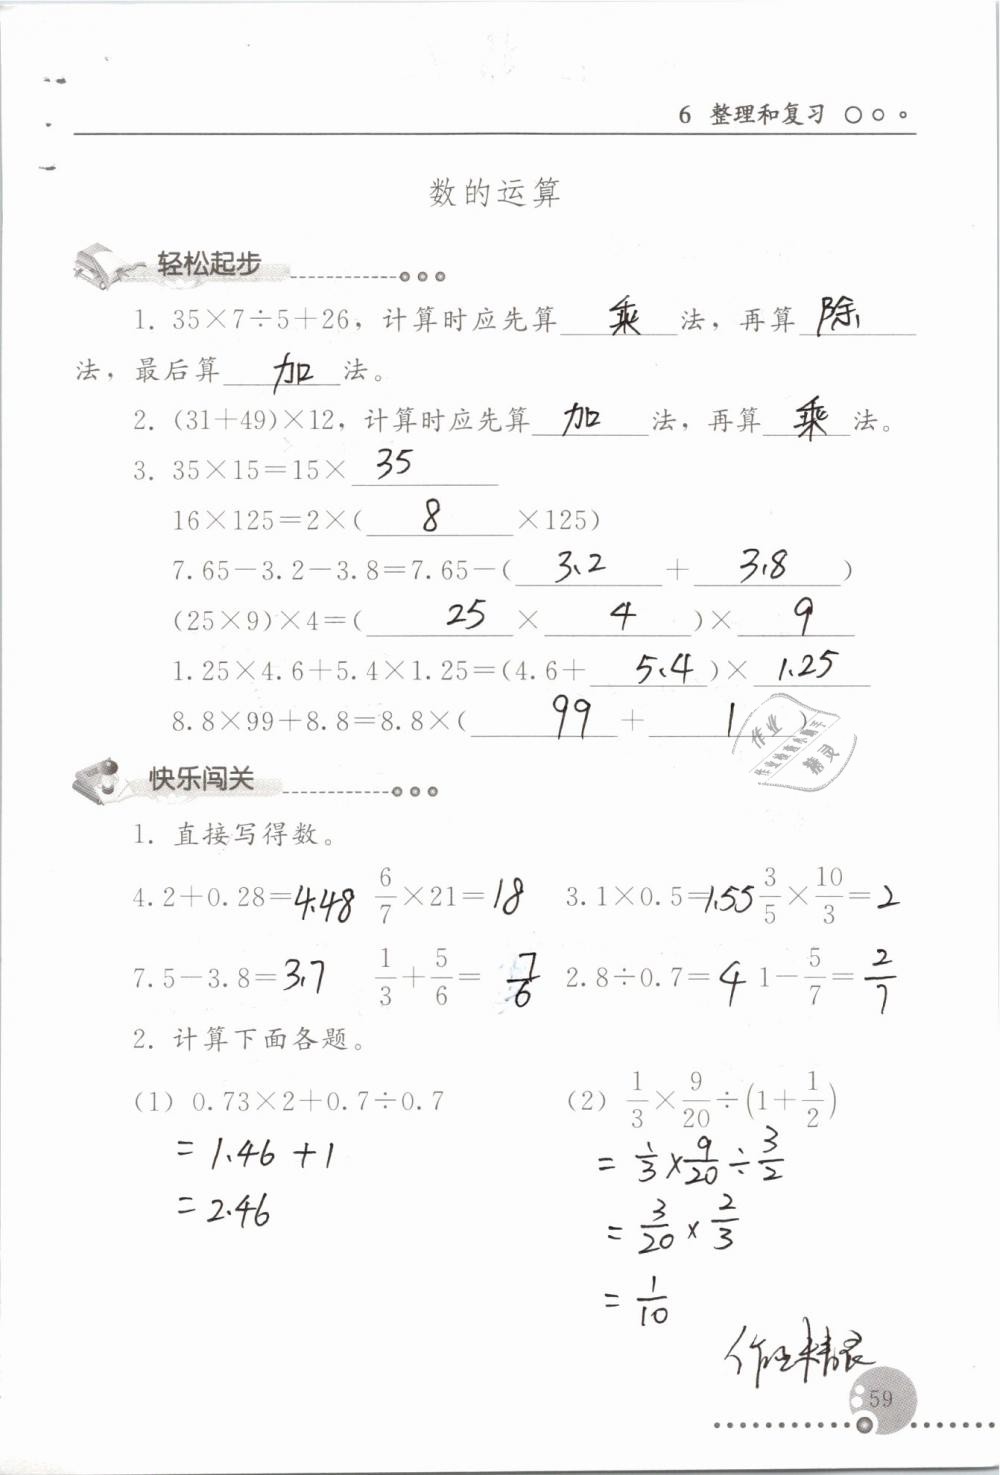 6 整理和复习
数的运算
轻松起步
1. 35×7÷5+26，计算时应先算 乘 法，再算 除
法，最后算 加 法。
2. (31+49)×12，计算时应先算 加 法，再算 乘 法。
3. 35×15=15× 35
16×125=2×( 8 ×125)
7.65-3.2-3.8=7.65-( 3.2 + 3.8 )
(25×9)×4=( 25 × 4 )× 9
1.25×4.6+5.4×1.25=(4.6+ 5.4 )× 1.25
8.8×99+8.8=8.8×( 99 + 1 )
作业
作业检查小助手
精灵
快乐闯关
1. 直接写得数。
4.2+0.28=4.48 6/7×21=18 3.1×0.5=1.55 3/5×10/3=2
7.5-3.8=3.7 1/3+5/6=7/6 2.8÷0.7=4 1-5/7=2/7
2. 计算下面各题。
(1) 0.73×2+0.7÷0.7 (2) 1/3×9/20÷(1+1/2)
=1.46+1 =1/3×9/20÷3/2
=2.46 =3/20×2/3
=1/10
作业精灵
59